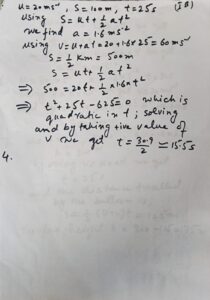 u = 20 ms⁻¹, S = 100m, t = 25s (I B)
using S = ut + ½ at²
we find a = 1.6 ms⁻²
using v = u + at = 20 + 1.6 × 25 = 60 ms⁻¹
S = ½ km = 500m
S = ut + ½ at²
⇒ 500 = 20t + ½ × 1.6 × t²
⇒ t² + 25t - 625 = 0 which is
quadratic in t; solving
and by taking +ive value of
v we get t = 30.9/2 ≈ 15.5s
4.